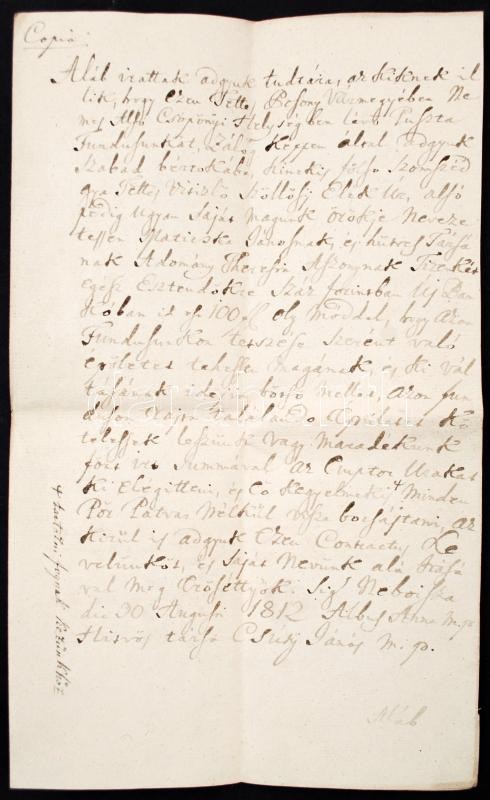 Copia
Alól irattak adgyuk tudtára, az kiknek il
lik, hogy Ezen Tettes Posony Vármegyében Ne
mes Alsó Csöpönyi Helységben lévő Puszta
Fundusunkat, Zálog képpen által adgyuk
Szabad birtokába, kinekis fölső Szomszéd
gya Tettes Vitézlő Szöllősy Elek Ur, alsó
pedig Ugyan Saját magunk örökje Neveze
tessen Maticzka Jánosnak, és hütves Társá
nak Adomány Theresia Aszonynak Tizenkét
egész Esztendőkre Száz forintban Uj Ban
kóban id est 100 f oly móddal, hogy azon
Fundusunkon tecczése szerént való
épületet tehessen magának, és ki vál
tásának idején bőrső mellet, azon fun
duson rajta találandó épületet Kö
telesek leszünk vagy Maradékunk
föst vet Summával az Emptor Urakat
Ki Elégitteni, és Eő Kegyelmek is + minden
Pör Patvar Nélkül vissza bocsájtani, az
kirül is adgyuk Ezen Contractus Le
velünköt, és Saját Nevünk alá írásá
val meg Erőséttyök. Sig Neboisza
die 30 Augusti 1812 Albus Anna m.p.
Hitvös társa Csiky János m.p.
+ tartozni fognak kezünkhöz
Aláb